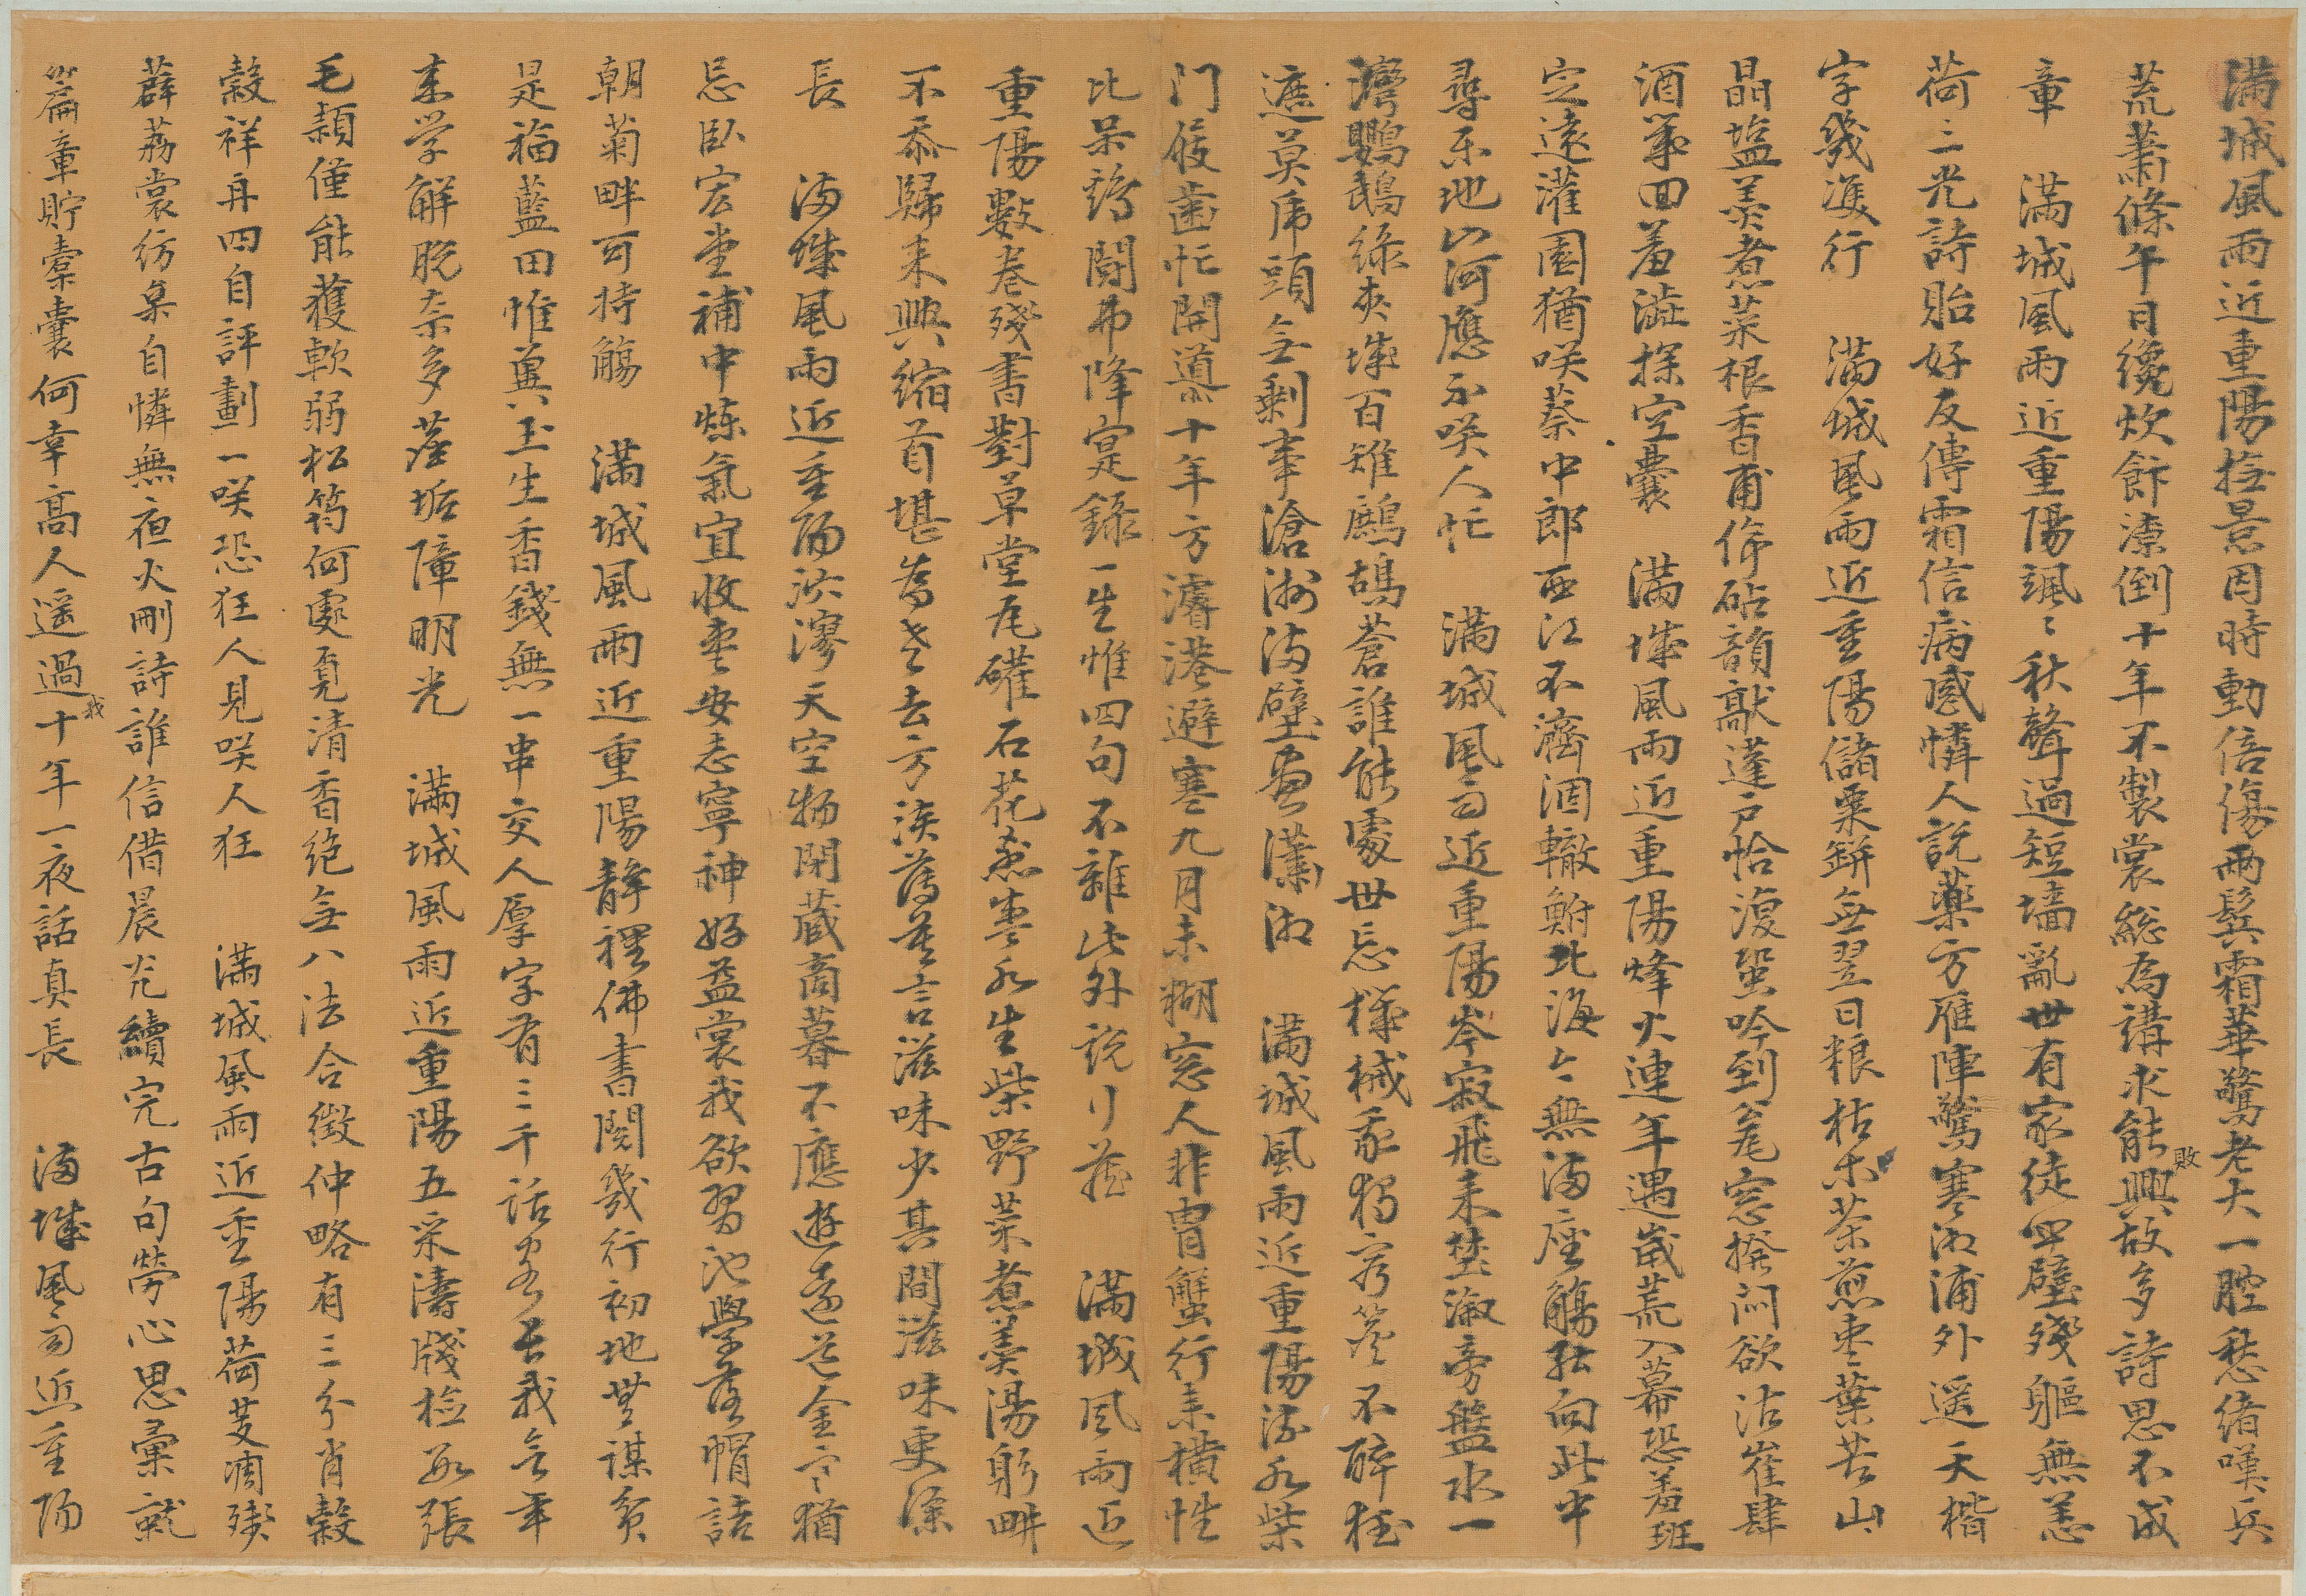 滿城風雨近重陽撫景因時動倍傷兩鬓霜華驚老大一腔愁緒嘆兵
荒蕭條午日纔炊餅潦倒十年不製裳總為講求能興敗故多詩思不成
章 滿城風雨近重陽颯〻秋聲過短墻亂世有家徒四壁殘軀無恙
荷三光詩貽好反傳霜信病感憐人說藥方雁陣驚寒湘浦外遥天楷
字幾雙行 滿城風雨近重陽儲粟缾無翌日粮枯木茶煎枣葉苦山
晶塩羡煮菜根香甫停砧韻敲蓬戶恰復蛩吟到菴窓撥悶欲沽崔肆
酒幾回羞澁探空囊 滿城風雨近重陽烽火連年遇歲荒入幕恐羞班
定遠灌園猶咲蔡中郎西江不濟涸轍鮒北海今無滿座觴孤向此中
尋乐地山河應不咲人忙 滿城風雨近重陽岑寂飛来楚溆旁盤水一
灣鸚鵡綠夾城百雉鷓鴣蒼誰能處世忘機械豕獨窮簷不醉狂
遮莫席頭無剩事滄洲滿壁畫瀟湘 滿城風雨近重陽流水柴
门屐齒忙開道十年方濬港避寒九月未糊窓人非胄蟹行素横性
比呆鸡鬪弗降寔錄一生惟四句不雜此外說行藏 滿城風雨近
重陽數卷殘書對草堂瓦礶石花煮枣水生柴野菜煮羹湯躬畊
不忝歸来興縮首堪為老去方淡薄莫言滋味少其間滋味更深
長 滿城風雨近重陽泬漻天空物閉藏商暮不應遊遠道金寒猶
忌臥宏堂補中煉氣宜收枣安志寧神好益裳我欲習池學落帽詰
朝菊畔可持觴 滿城風雨近重陽静裡佛書閱幾行初地無謀貧
是福藍田惟冀玉生香錢無一串交人厚字有三千話客長我今年
来学解脱奈多塵垢障明光 滿城風雨近重陽五采濤牋檢取張
毛頴僅能獲軟弱松筠何處覓清香絶無八法合徵仲略有三分肖穀
穀祥再四自評劃一咲恐狂人見咲人狂 滿城風雨近重陽荷芰凋殘
薜荔裳彷彙自憐無夜火刪詩誰信借晨光續完古句勞心思彙就
篇章貯橐囊何幸高人遥過我十年一夜話真長 滿城風雨近重陽